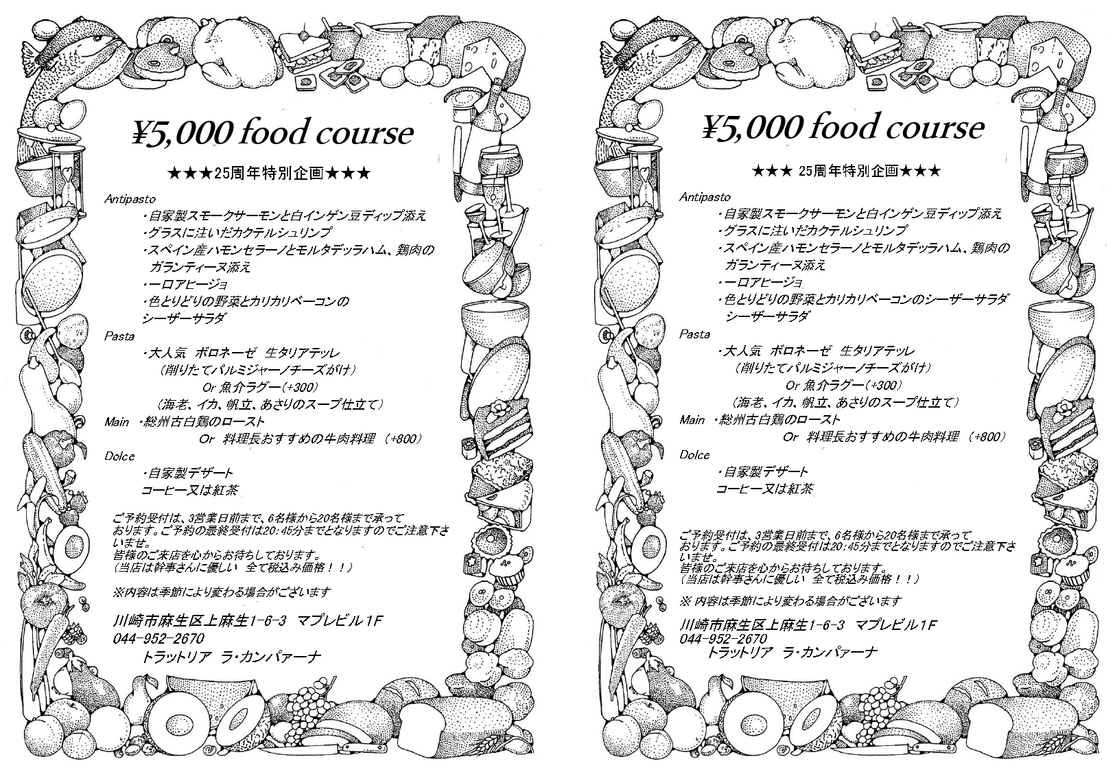 ¥5,000 food course
★★★25周年特別企画★★★
Antipasto
・自家製スモークサーモンと白インゲン豆ディップ添え
・グラスに注いだカクテルシュリンプ
・スペイン産ハモンセラーノとモルタデッラハム、鶏肉の
ガランティーヌ添え
・一ロアヒージョ
・色とりどりの野菜とカリカリベーコンの
シーザーサラダ
Pasta
・大人気 ボロネーゼ 生タリアテッレ
(削りたてパルミジャーノチーズがけ)
Or 魚介ラグー(+300)
(海老、イカ、帆立、あさりのスープ仕立て)
Main ・総州古白鶏のロースト
Or 料理長おすすめの牛肉料理 (+800)
Dolce
・自家製デザート
コーヒー又は紅茶
ご予約受付は、3営業日前まで、6名様から20名様まで承って
おります。ご予約の最終受付は20:45分までとなりますのでご注意下さ
いませ。
皆様のご来店を心からお待ちしております。
(当店は幹事さんに優しい 全て税込み価格!!)
※内容は季節により変わる場合がございます
川崎市麻生区上麻生1-6-3 マプレビル1F
044-952-2670
トラットリア ラ・カンパァーナ
¥5,000 food course
★★★ 25周年特別企画★★★
Antipasto
・自家製スモークサーモンと白インゲン豆ディップ添え
・グラスに注いだカクテルシュリンプ
・スペイン産ハモンセラーノとモルタデッラハム、鶏肉の
ガランティーヌ添え
・一ロアヒージョ
・色とりどりの野菜とカリカリベーコンのシーザーサラダ
シーザーサラダ
Pasta
・大人気 ボロネーゼ 生タリアテッレ
(削りたてパルミジャーノチーズがけ)
Or 魚介ラグー(+300)
(海老、イカ、帆立、あさりのスープ仕立て)
Main ・総州古白鶏のロースト
Or 料理長おすすめの牛肉料理 (+800)
Dolce
・自家製デザート
コーヒー又は紅茶
ご予約受付は、3営業日前まで、6名様から20名様まで承って
おります。ご予約の最終受付は20:45分までとなりますのでご注意下さ
いませ。
皆様のご来店を心からお待ちしております。
(当店は幹事さんに優しい 全て税込み価格!!)
※ 内容は季節により変わる場合がございます
川崎市麻生区上麻生1-6-3 マプレビル1F
044-952-2670
トラットリア ラ・カンパァーナ